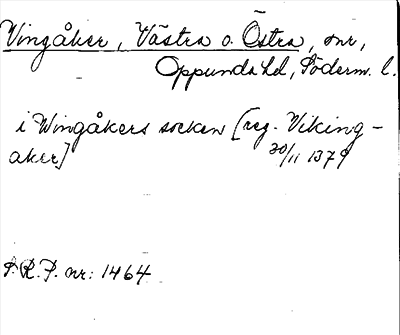 Vingåker, Västra o. Östra, snr,
Oppunda hd, Söderm. l.
i Wingåkers socken [reg. Viking-
aker] 30/11 1379
S.R.P. nr: 1464